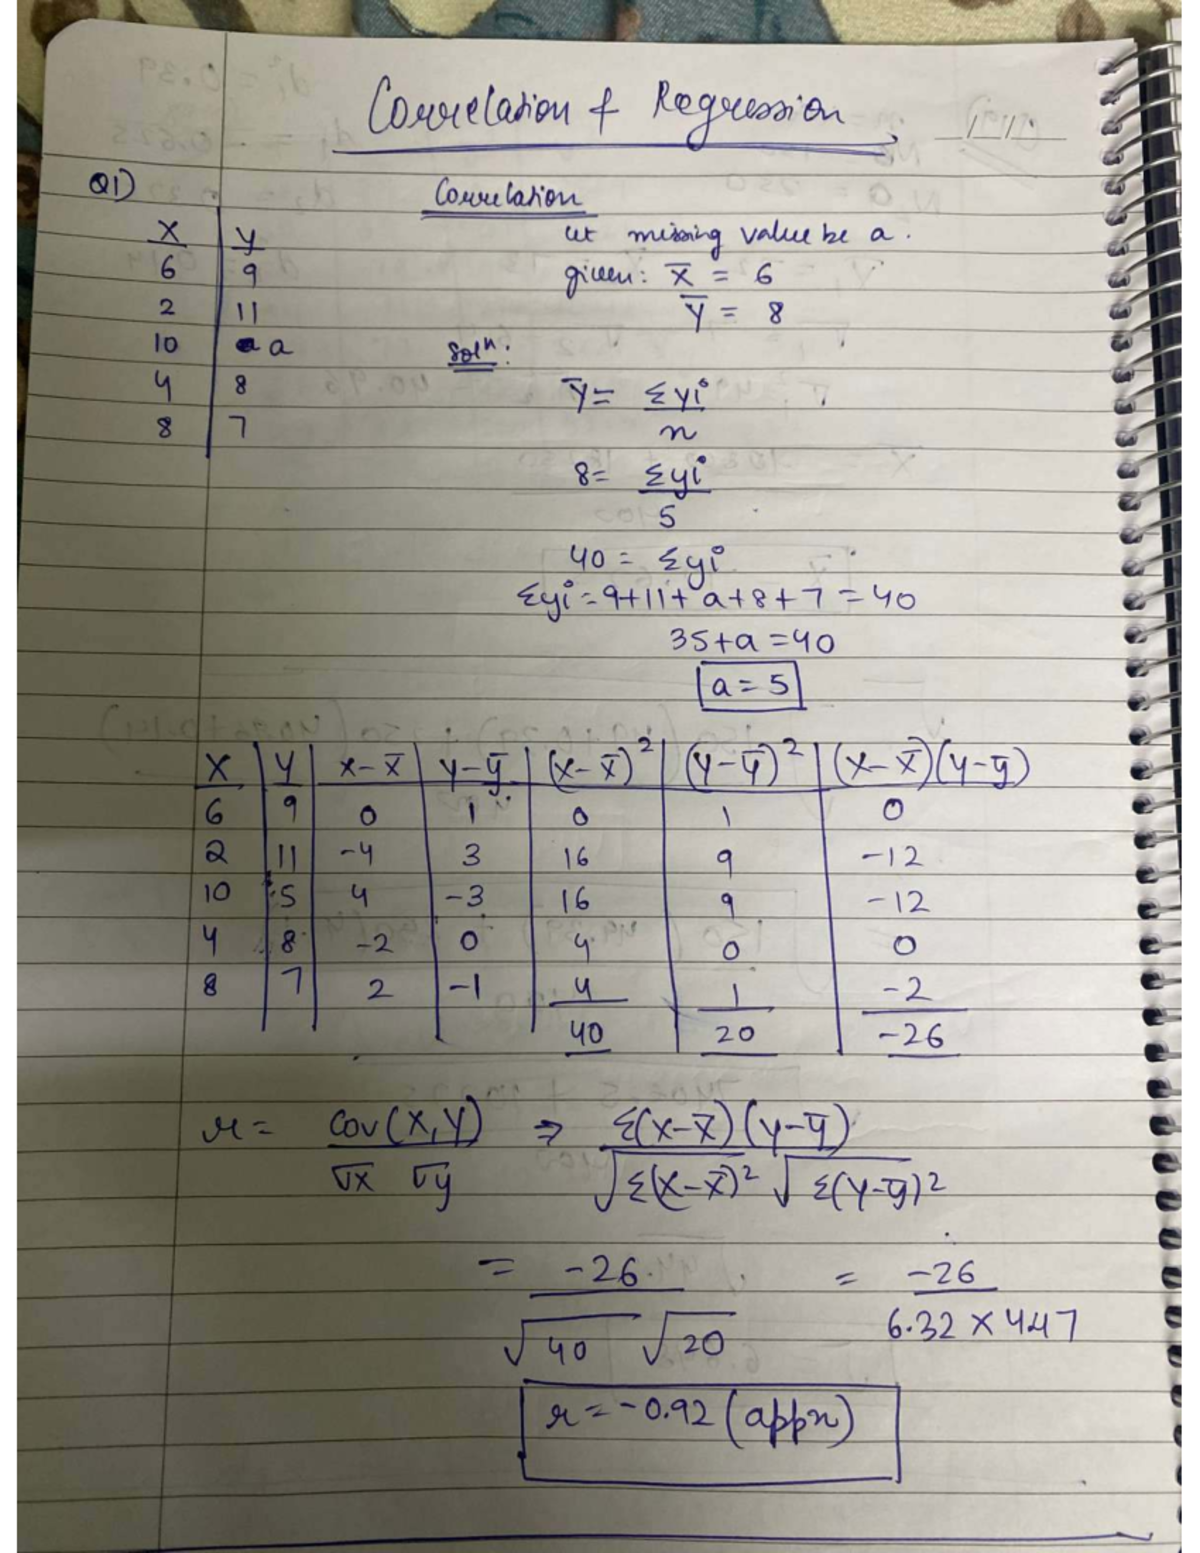 Correlation & Regression
Q1) Correlation
X Y let missing value be a.
6 9 given: X̅ = 6
2 11 Y̅ = 8
10 a Solⁿ:
4 8 Y̅ = Σyi/n
8 7
8 = Σyi/5
40 = Σyi
Σyi = 9+11+a+8+7 = 40
35+a = 40
a = 5
X Y x-x̅ y-y̅ (x-x̅)² (y-y̅)² (x-x̅)(y-y̅)
6 9 0 1 0 1 0
2 11 -4 3 16 9 -12
10 5 4 -3 16 9 -12
4 8 -2 0 4 0 0
8 7 2 -1 4 1 -2
40 20 -26
r = Cov(X,Y)/σx σy ⇒ Σ(x-x̅)(y-y̅)/√Σ(x-x̅)² √Σ(y-y̅)²
= -26/√40 √20 = -26/6.32 × 4.47
r = -0.92 (appx)